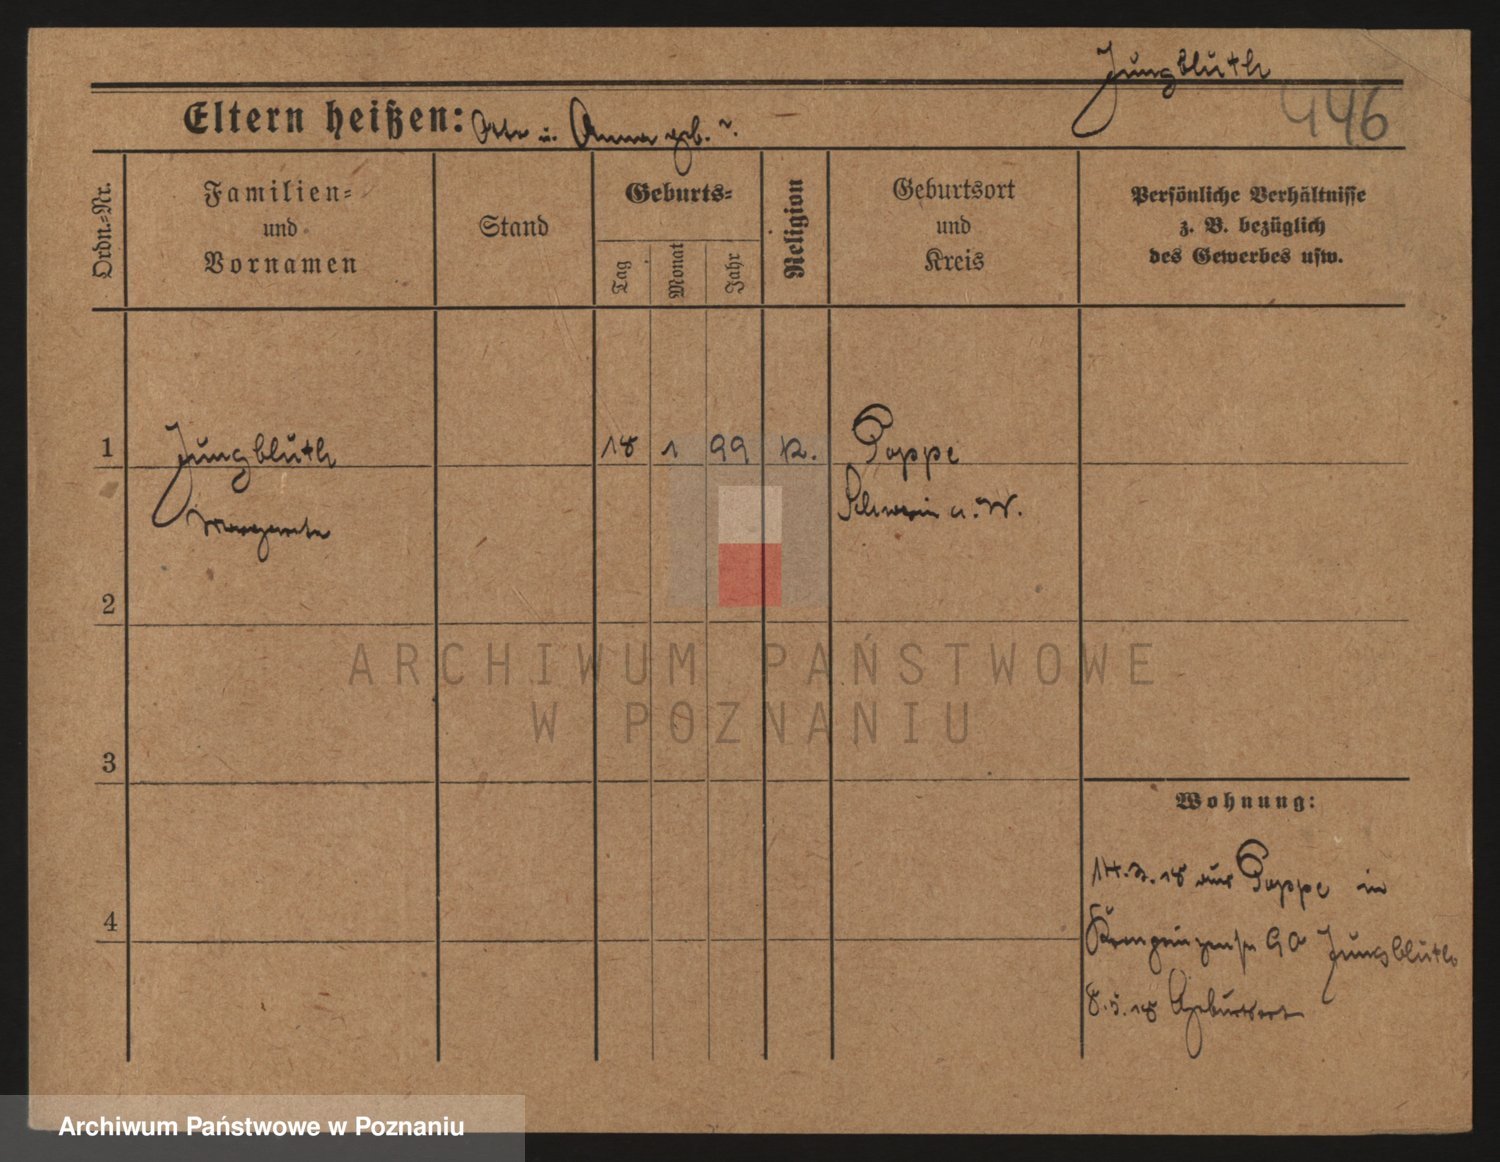 Jungblüth
446
Eltern heißen: Otto u. Anna geb. ?.
Ordn.-Nr.
Familien-
und
Vornamen
Stand
Geburts-
Tag
Monat
Jahr
Religion
Geburtsort
und
Kreis
Persönliche Verhältnisse
z. B. bezüglich
des Gewerbes usw.
1
Jungblüth
18 1 99 K. Poppe
Margarete
Schwerin a. W.
2
ARCHIWUM PAŃSTWOWE
W POZNANIU
3
Wohnung:
14.3.18 aus Poppe in
4
Kronprinzenstr 90 Jungblüth
8.5.18 Geburtsort
Archiwum Państwowe w Poznaniu